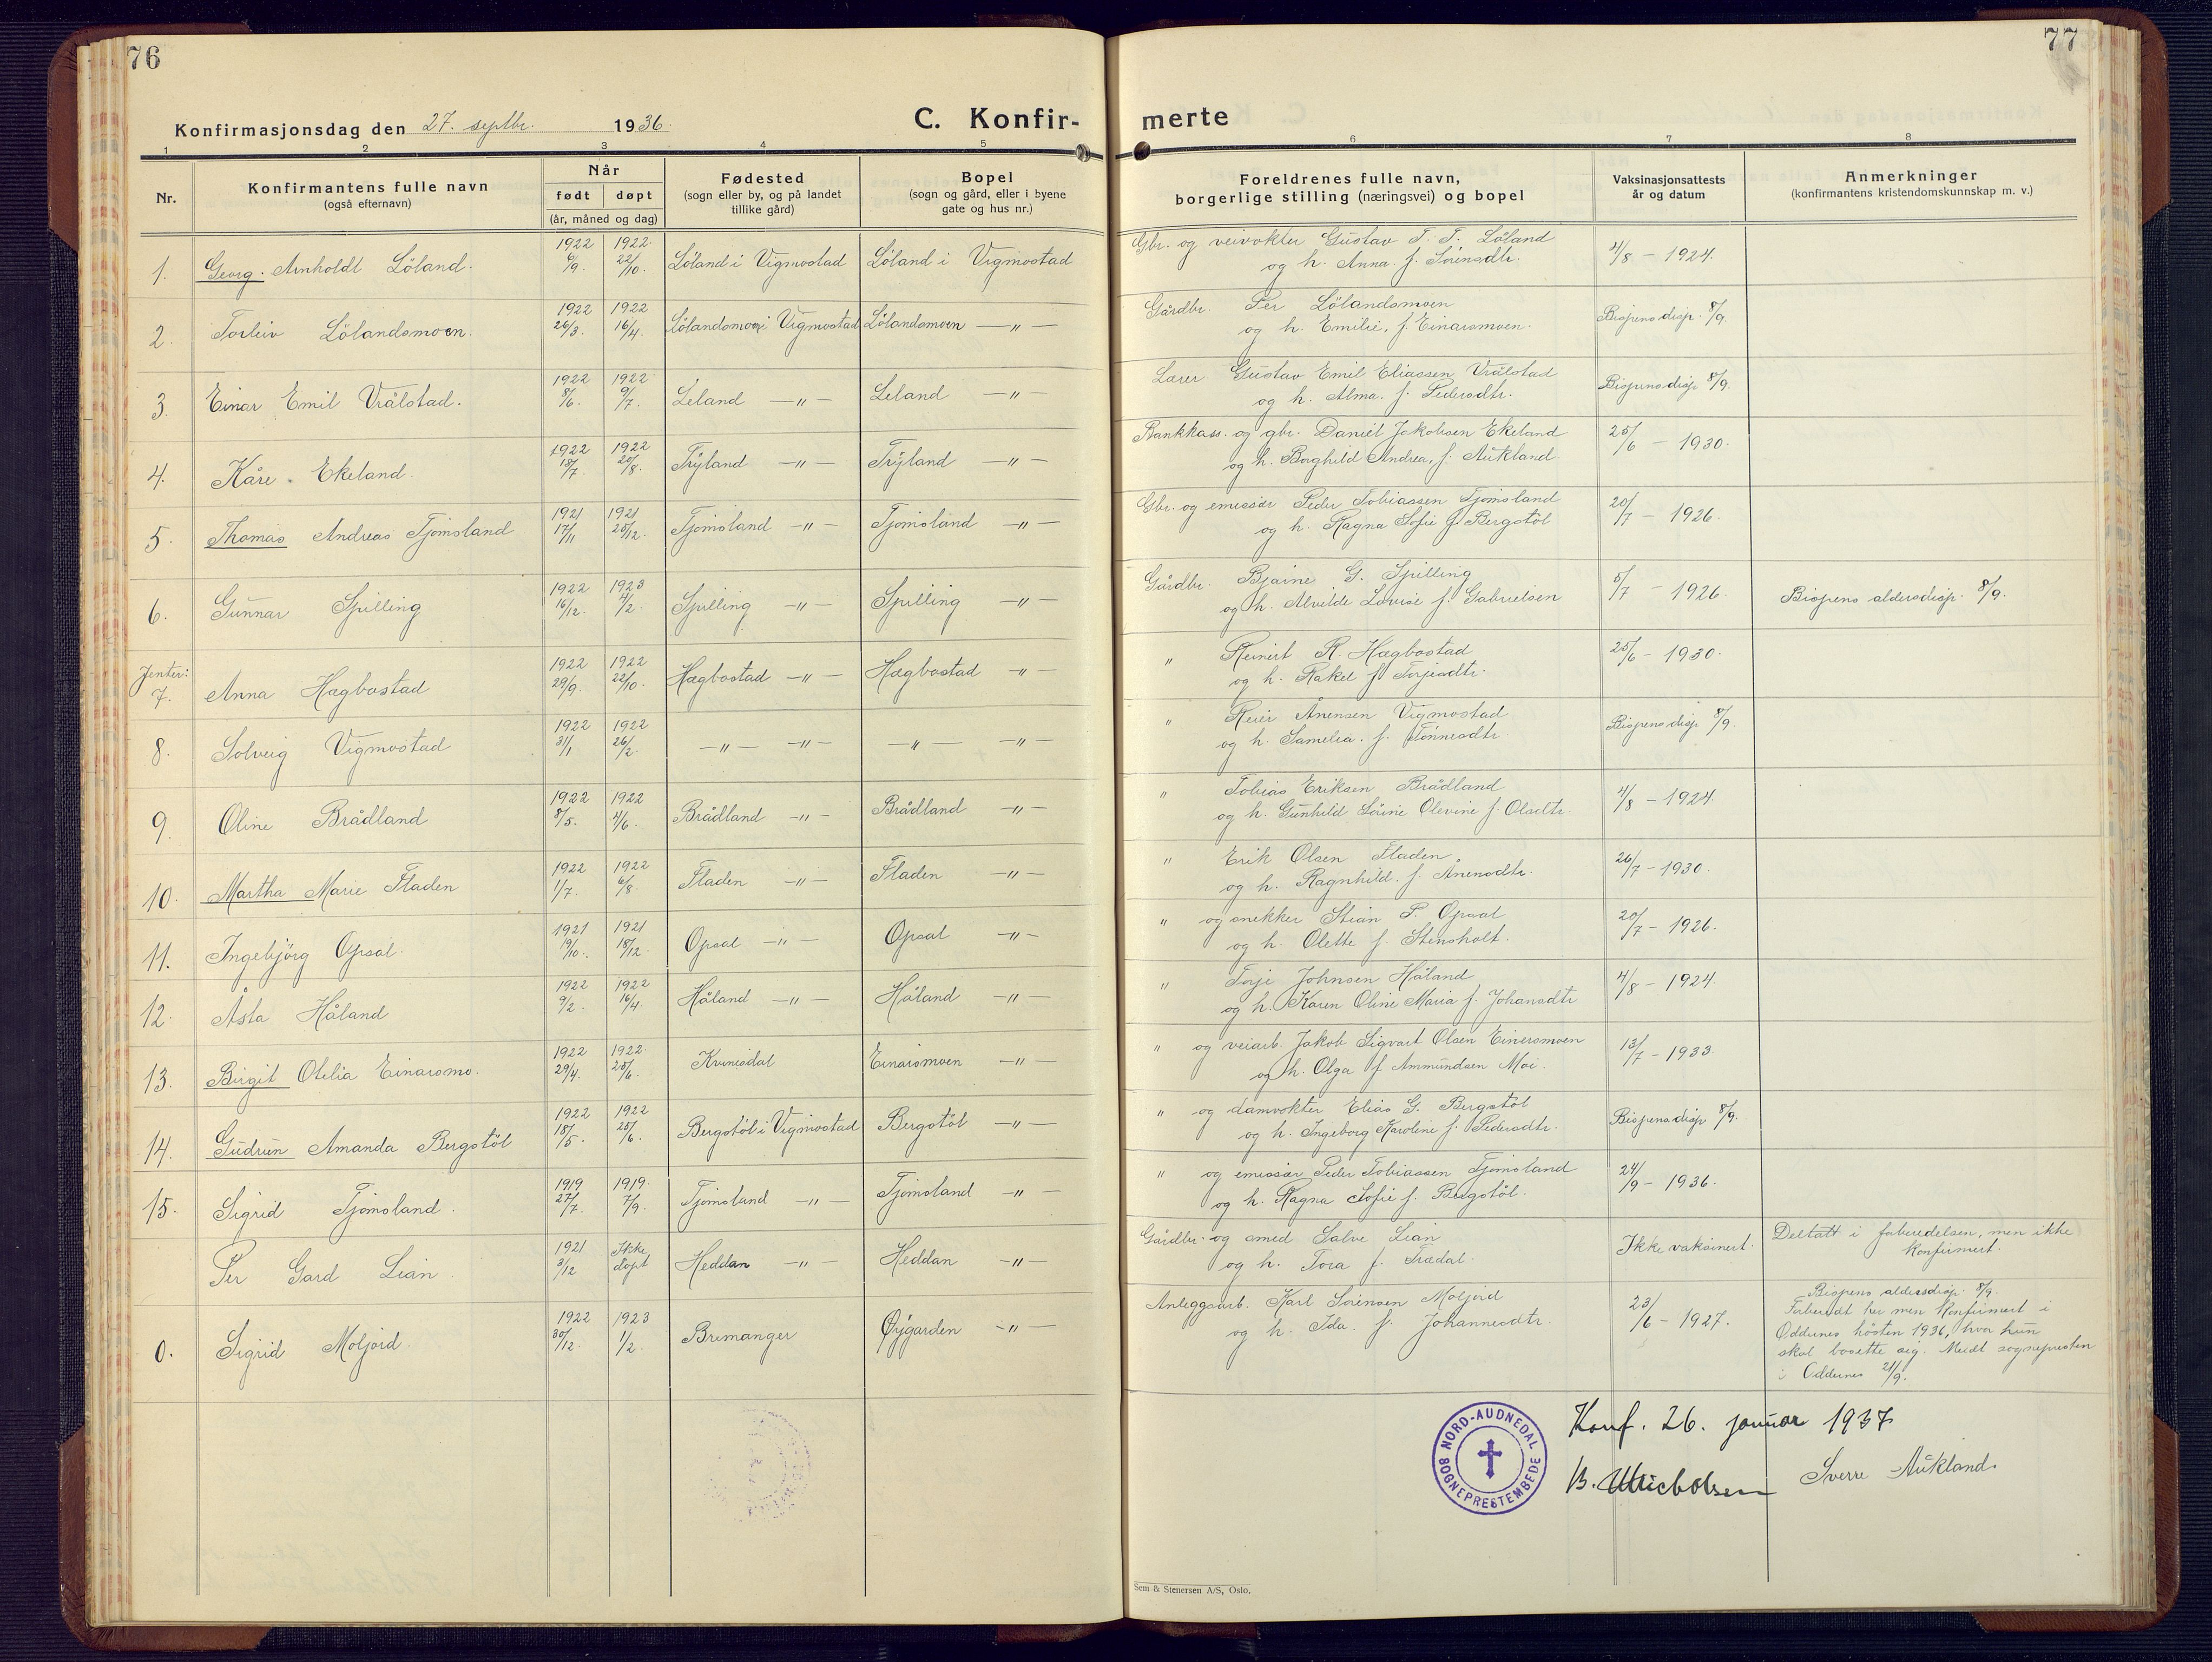 76
77
Konfirmasjonsdag den 27. septbr. 1936.
C. Konfir-
merte
1 2 3 4 5 6 7 8
Nr.
Konfirmantens fulle navn
(også efternavn)
Når
født døpt
(år, måned og dag)
Fødested
(sogn eller by, og på landet
tillike gård)
Bopel
(sogn og gård, eller i byene
gate og hus nr.)
Foreldrenes fulle navn,
borgerlige stilling (næringsvei) og bopel
Vaksinasjonsattests
år og datum
Anmerkninger
(konfirmantens kristendomskunnskap m. v.)
1. Georg. Arnholdt Löland. 1922 6/9. 1922. 22/10. Löland i Vigmostad Löland i Vigmostad Gbr. og veivokter Gustav T. T. Löland
og h. Anna. f. Sörensdtr. 4/8 - 1924.
2. Torleiv Lölandsmoen. 1922 26/3. 1922 16/4. Lölandsmoen i Vigmostad Lölandsmoen —"— Gårdbr. Per Lölandsmoen
og h. Emilie, f. Einarsmoen. Bispens disp. 8/9.
3. Einar Emil Vrålstad. 1922 8/6. 1922 9/7. Leland —"— Leland —"— Lærer Gustav Emil Eliassen Vrålstad
og h. Alma. f. Pedersdtr. Bispens disp 8/9.
4. Kåre. Ekeland. 1922 18/7. 1922 20/8. Tryland —"— Tryland —"— Bankkass. og gbr. Daniel Jakobsen Ekeland
og h. Borghild Andrea, f. Aukland. 25/6 - 1930.
5. Thomas Andreas Tjomsland 1921 17/11 1921 25/12. Tjomsland —"— Tjomsland —"— Gbr. og emissær Peder Tobiassen Tjomsland
og h. Ragna Sofie f Bergstöl 20/7 - 1926.
6. Gunnar Spilling 1922 16/12. 1923 4/2. Spilling —"— Spilling —"— Gårdbr. Bjarne G. Spilling
og h. Alvilde Lovise f. Gabrielsen 5/7 - 1926. Bispens aldersdisp. 8/9.
Jenter:
7. Anna Hægbostad 1922 29/9. 1922 22/10. Hægbostad —"— Hægbostad —"— " Reinert R. Hægbostad
og h. Rakel f Torjesdtr. 25/6 - 1930.
8. Solveig Vigmostad 1922 31/1 1922 26/2. —"— —"— —"— —"— " Reier Ånensen Vigmostad
og h. Samelia. f. Tönnesdtr. Bispens disp 8/9.
9. Oline Brådland 1922 8/5. 1922 4/6. Brådland —"— Brådland —"— " Tobias Eriksen Brådland
og h. Gunhild Sörine Olevine f. Olsdtr. 4/8 - 1924.
10. Martha Marie Fladen 1922 1/7. 1922 6/8 Fladen —"— Fladen —"— " Erik Olsen Fladen
og h. Ragnhild. f. Ånensdtr. 26/7 - 1930.
11. Ingebjörg Opsal. 1921 19/10. 1921 18/12. Opsal —"— Opsal —"— " og snekker Stian P. Opsal
og h. Olette f. Stensholt. 20/7 - 1926.
12. Åsta Håland 1922 9/2. 1922 16/4. Håland —"— Håland —"— " Torje Johnsen Håland
og h. Karen Oline Maria f. Johansdtr 4/8 - 1924.
13. Birgit Otilia Einarsmo. 1922 29/4. 1922. 25/6. Kvinesdal Einarsmoen —"— " og veiarb. Jakob Sigvart Olsen Einersmoen
og h. Olga f Ammundsen Moi. 13/7 - 1933.
14. Gudrun Amanda Bergstöl 1922 18/5. 1922 25/6. Bergstöl i Vigmostad Bergstöl —"— " og damvokter Elias G. Bergstöl
og h. Ingeborg Karoline f. Pedersdtr. Bispens disp 8/9.
15. Sigrid Tjomsland. 1919 27/7. 1919. 7/9. Tjomsland —"— Tjomsland —"— " og emissær Peder Tobiassen Tjomsland
og h. Ragna Sofie f. Bergstöl. 24/9 - 1936.
Per Gard Lian 1921 3/12 Ikke döpt Heddan —"— Heddan —"— Gårdbr. og smed Salve Lian
og h. Tora f. Trædal. Ikke vaksinert. Deltatt i forberedelsen, men ikke
konfirmert.
0. Sigrid Moljord. 1922 30/12. 1923 1/2. Bremanger Øygarden —"— Anleggsarb. Karl Sörensen Moljord
og h. Ida. f. Johannesdtr. 23/6 - 1927. Bispens aldersdisp. 8/9.
Forberedt her men konfirmert i
Oddernes hösten 1936, hvor hun
skal bosette sig. Meldt sognepresten
i Oddernes 21/9.
NORD-AUDNEDAL SOGNEPRESTEMBEDE
Konf. 26. januar 1937
Sverre Aukland.
Sem & Stenersen A/S, Oslo.